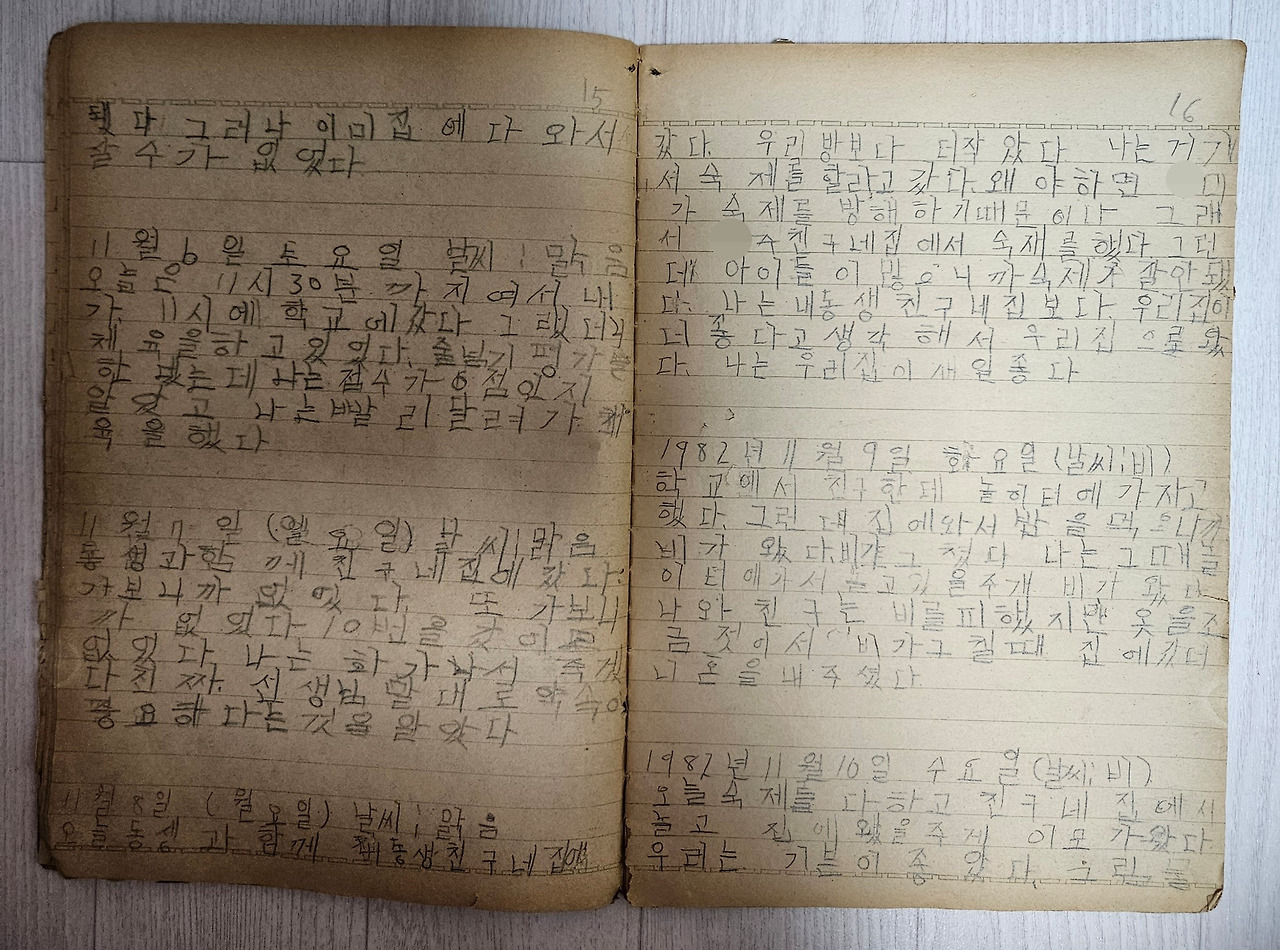 15
됏다 그러나 이미집 에다 와서
살수가 없었다
11월 6일 토요일 날씨; 맑음
오늘은 11시 30분 까지 여서 내
가 11시에 학교에갔다 그랬더니
체육을하고있었다. 줄넘기 평가를
하 는데 나는점수가 6점인지
알았고 나는빨리달려가 체
육을했다
11월 7일 (일요일) 날씨; 맑음
동생과함께 친구네집에 갔다.
가보니까 없었다. 또 가보니
까 없었다 10번을갓이도
없었다 나는 화가나서 죽겟
다 진짜. 선생님말대로 약속이
중요하다는것을알았다
11월 8일 (월요일) 날씨; 맑음
오늘동생과 함께 동생친구네집에
16
갔다. 우리방보다 더작았다 나는거기
서숙제를할라고갔다.왜야하면
가 숙제를 방해하기때문이다 그래
서 친구네집에서 숙재를했다 그런
데 아이들이많으니까숙제가 잘안됐
다. 나는내동생친구네집보다. 우리집이
더좋다고생각해서 우리집으로왔
다. 나는우리집이제일좋다
1982년 11월 9일 화요일 (날씨;비)
학교에서 친구한테 놀이터에가자고
했다. 그런대집에와서밥을먹으니까
비가 왔다.비가그젓다 나는그때놀
이터에가서놀고있을주개 비가왔다
나와친구는 비를피했지만 옷을조
금젓어서 비가그칠때 집에갔더
니 혼을내주셨다
1982년 11월 10일 수요일 (날씨; 비)
오늘숙제를 다하고 친구네집에서
놀고 집에왔을주제 이모가왔다.
우리는 기분이좋았다. 그런